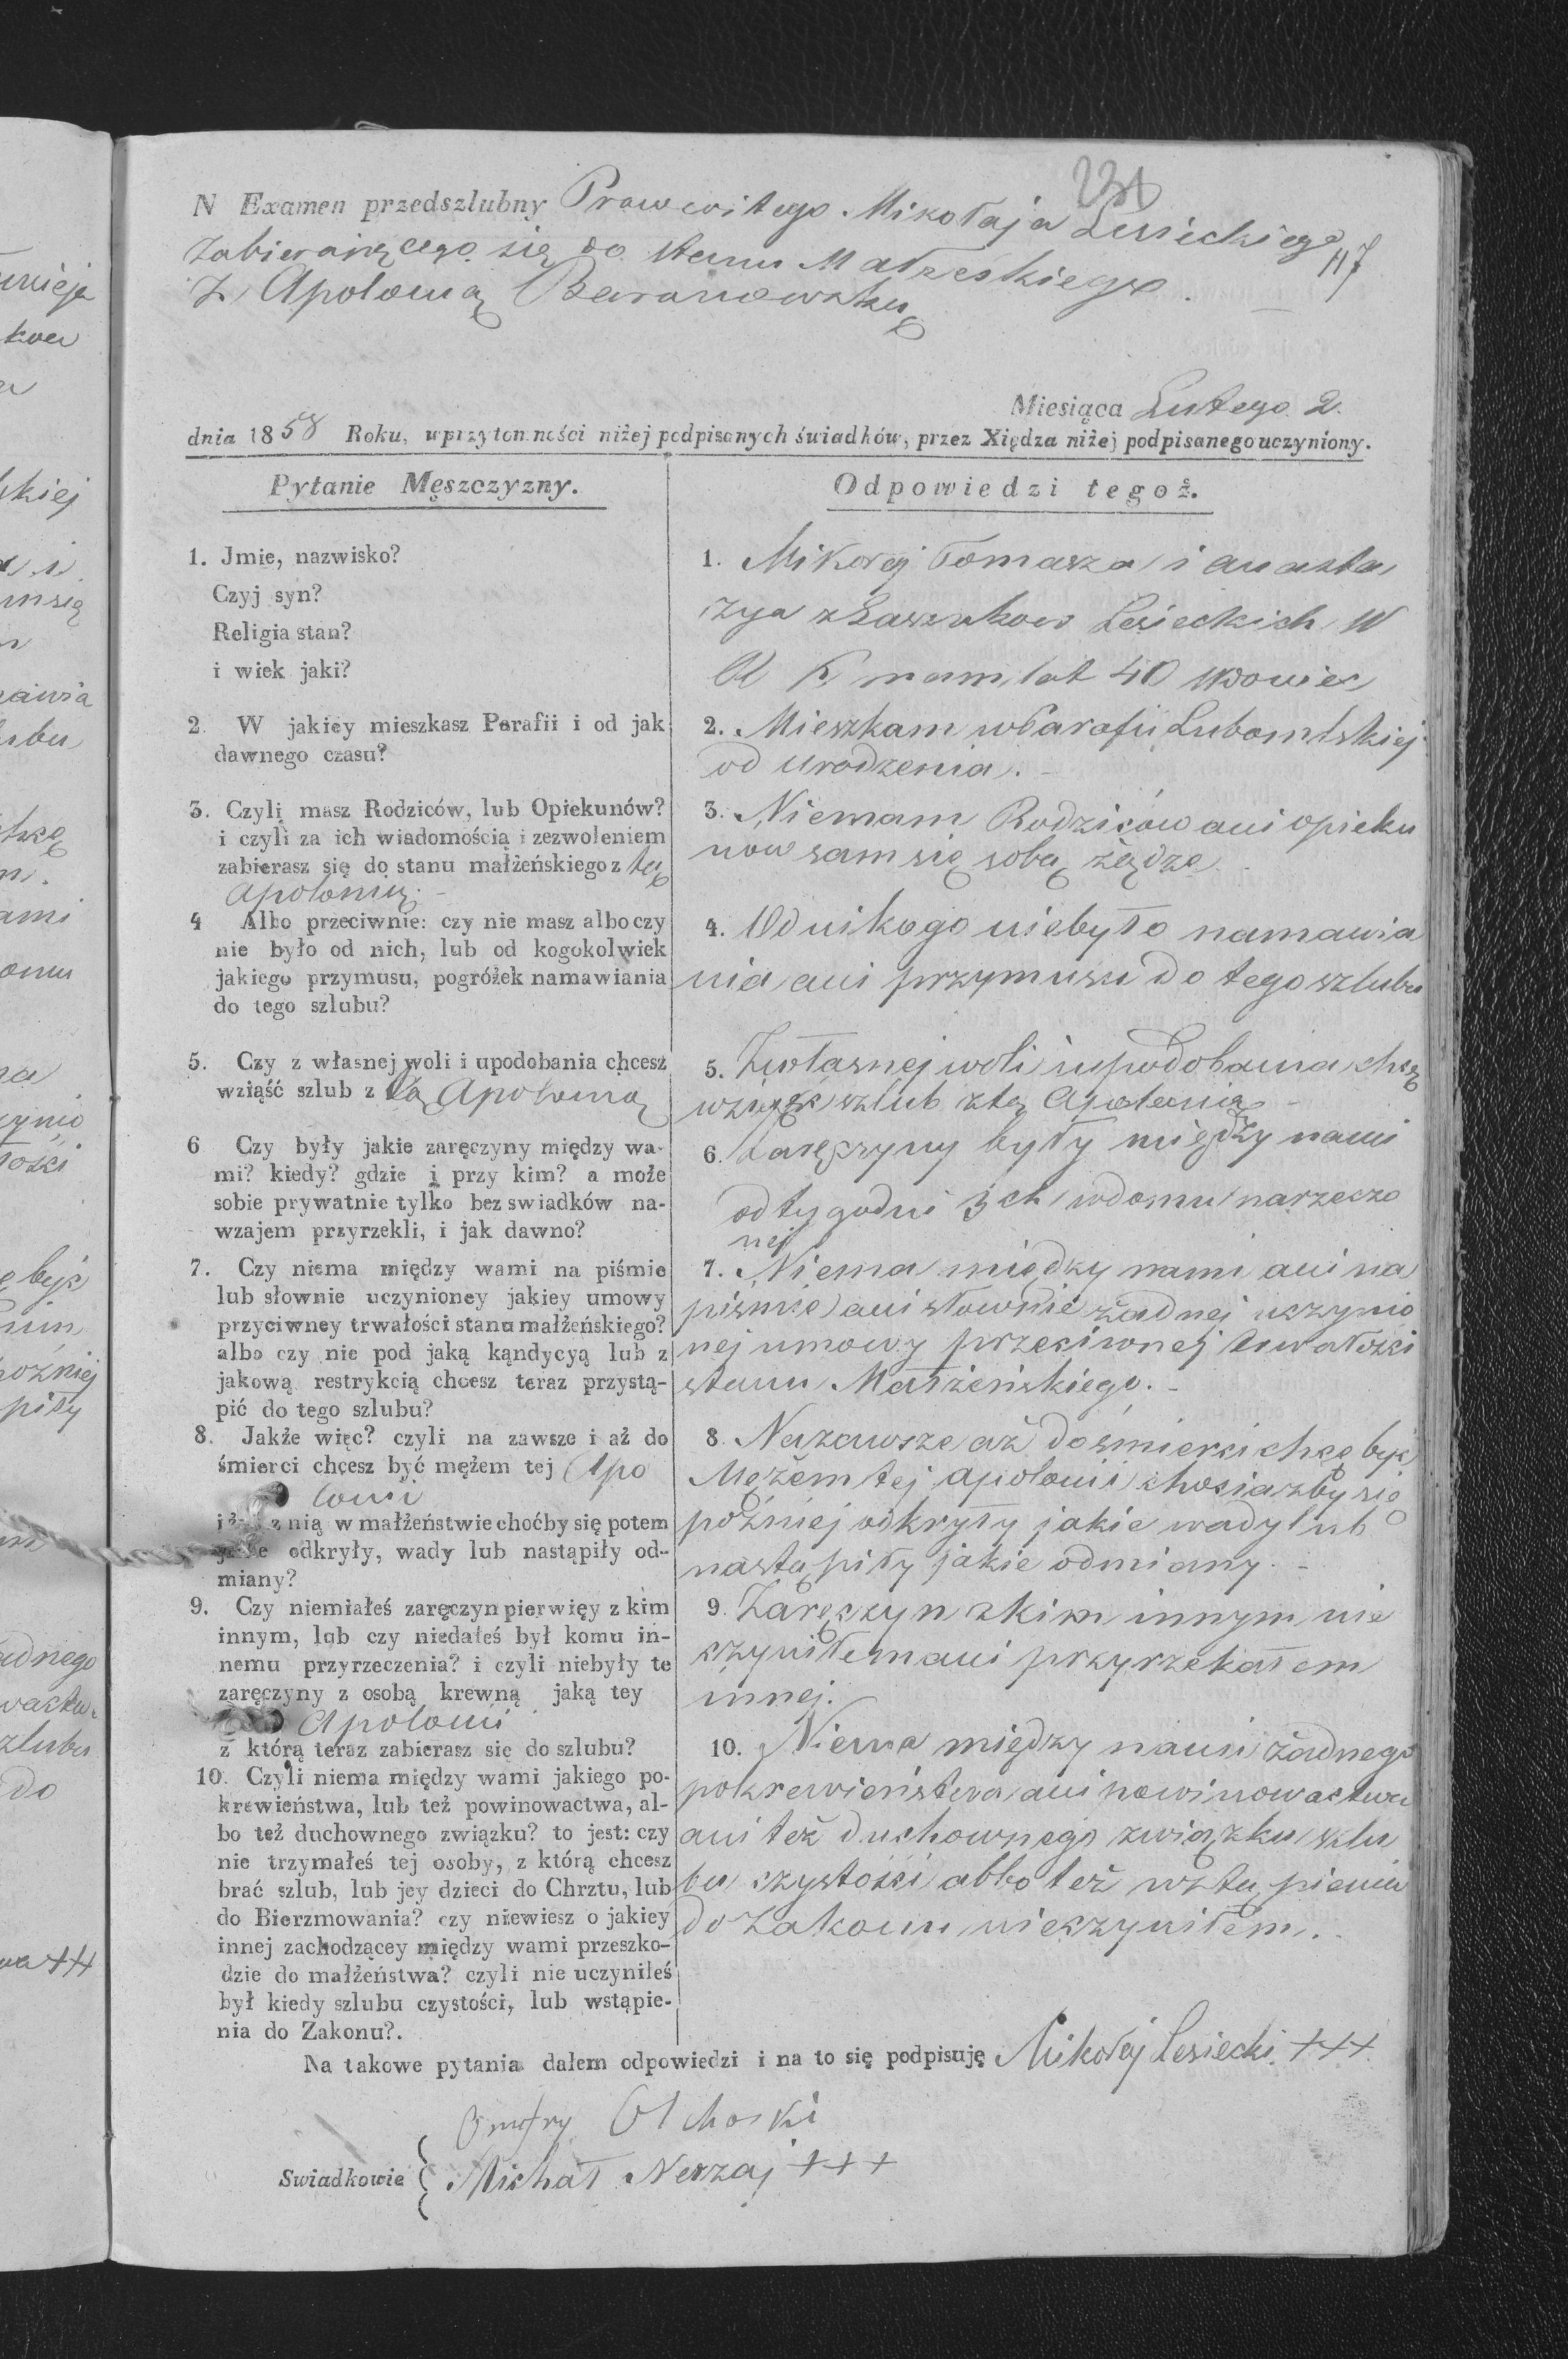 231
N Examen przedszlubny Prawowitego Mikołaja Lesieckiego
117
Zabierającego się do Stanu Małżeskiego
Z Apolonią Baranowską
Miesiąca Lutego 2.
dnia 1858 Roku, w przytomności niżej podpisanych świadków, przez Xiędza niżej podpisanego uczyniony.
Pytanie Męszczyzny.
Odpowiedzi tegoż.
1. Jmie, nazwisko?
Czyj syn?
Religia stan?
i wiek jaki?
1. Mikołaj Tomasza i Anasta
zya z Laszukow Lesieckich W
R K mam lat 40 wdowiec
2. W jakiey mieszkasz Parafii i od jak
dawnego czasu?
2. Mieszkam w Parafii Lubomlskiej
od urodzenia. -
3. Czyli masz Rodziców, lub Opiekunów?
i czyli za ich wiadomością i zezwoleniem
zabierasz się do stanu małżeńskiego z tą
Apolonią. -
3. Niemam Rodziców ani opieku
now sam się sobą żądze. -
4 Albo przeciwnie: czy nie masz albo czy
nie było od nich, lub od kogokolwiek
jakiego przymusu, pogróżek namawiania
do tego szlubu?
4. Od nikogo niebyło namawia
nia ani przymusu do tego szlubu
5. Czy z własnej woli i upodobania chcesz
wziąść szlub z tą Apolonią
5. Z własnej woli i upodobania chcę
wziąść szlub z tą Apolonią -
6 Czy były jakie zaręczyny między wa-
mi? kiedy? gdzie i przy kim? a może
sobie prywatnie tylko bez swiadków na-
wzajem przyrzekli, i jak dawno?
6. Zaręczyny były między nami
od tygodni 3ch w domu narzeczo
nej
7. Czy niema między wami na piśmie
lub słownie uczynioney jakiey umowy
przyciwney trwałości stanu małżeńskiego?
albo czy nie pod jaką kąndycyą lub z
jakową restrykcią chcesz teraz przystą-
pić do tego szlubu?
7. Niema między nami ani na
pismie ani słownie żadnej uczynio
nej umowy przeciwnej trwałości
stanu Małżeńskiego. -
8. Jakże więc? czyli na zawsze i aż do
śmierci chcesz być mężem tej Apo
lonii
z nią w małżeństwie choćby się potem
odkryły, wady lub nastąpiły od-
miany?
8. Na zawsze aż do śmierci chcę być
Mężem tej Apolonii chociażby się
później odkryły jakie wady lub
nastąpiły jakie odmiany. -
9. Czy niemiałeś zaręczyn pierwięy z kim
innym, lub czy niedałeś był komu in-
nemu przyrzeczenia? i czyli niebyły te
zaręczyny z osobą krewną jaką tey
Apolonii
z którą teraz zabierasz się do szlubu?
9. Zaręczyn z kim innym nie
czyniłem ani przyrzekałem
innej.
10. Czyli niema między wami jakiego po-
krewieństwa, lub też powinowactwa, al-
bo też duchownego związku? to jest: czy
nie trzymałeś tej osoby, z którą chcesz
brać szlub, lub jey dzieci do Chrztu, lub
do Bierzmowania? czy niewiesz o jakiey
innej zachodzącey między wami przeszko-
dzie do małżeństwa? czyli nie uczyniłeś
był kiedy szlubu czystości, lub wstąpie-
nia do Zakonu?.
10. Niema między nami żadnego
pokrewieństwa ani powinowactwa
ani też duchownego związku szlu
bu czystości albo też wstąpienia
do Zakonu nieczyniłem. -
Na takowe pytania dałem odpowiedzi i na to się podpisuję Mikołaj Lesiecki +++
Onufry Olchoski
Swiadkowie Michał Nerzaj +++